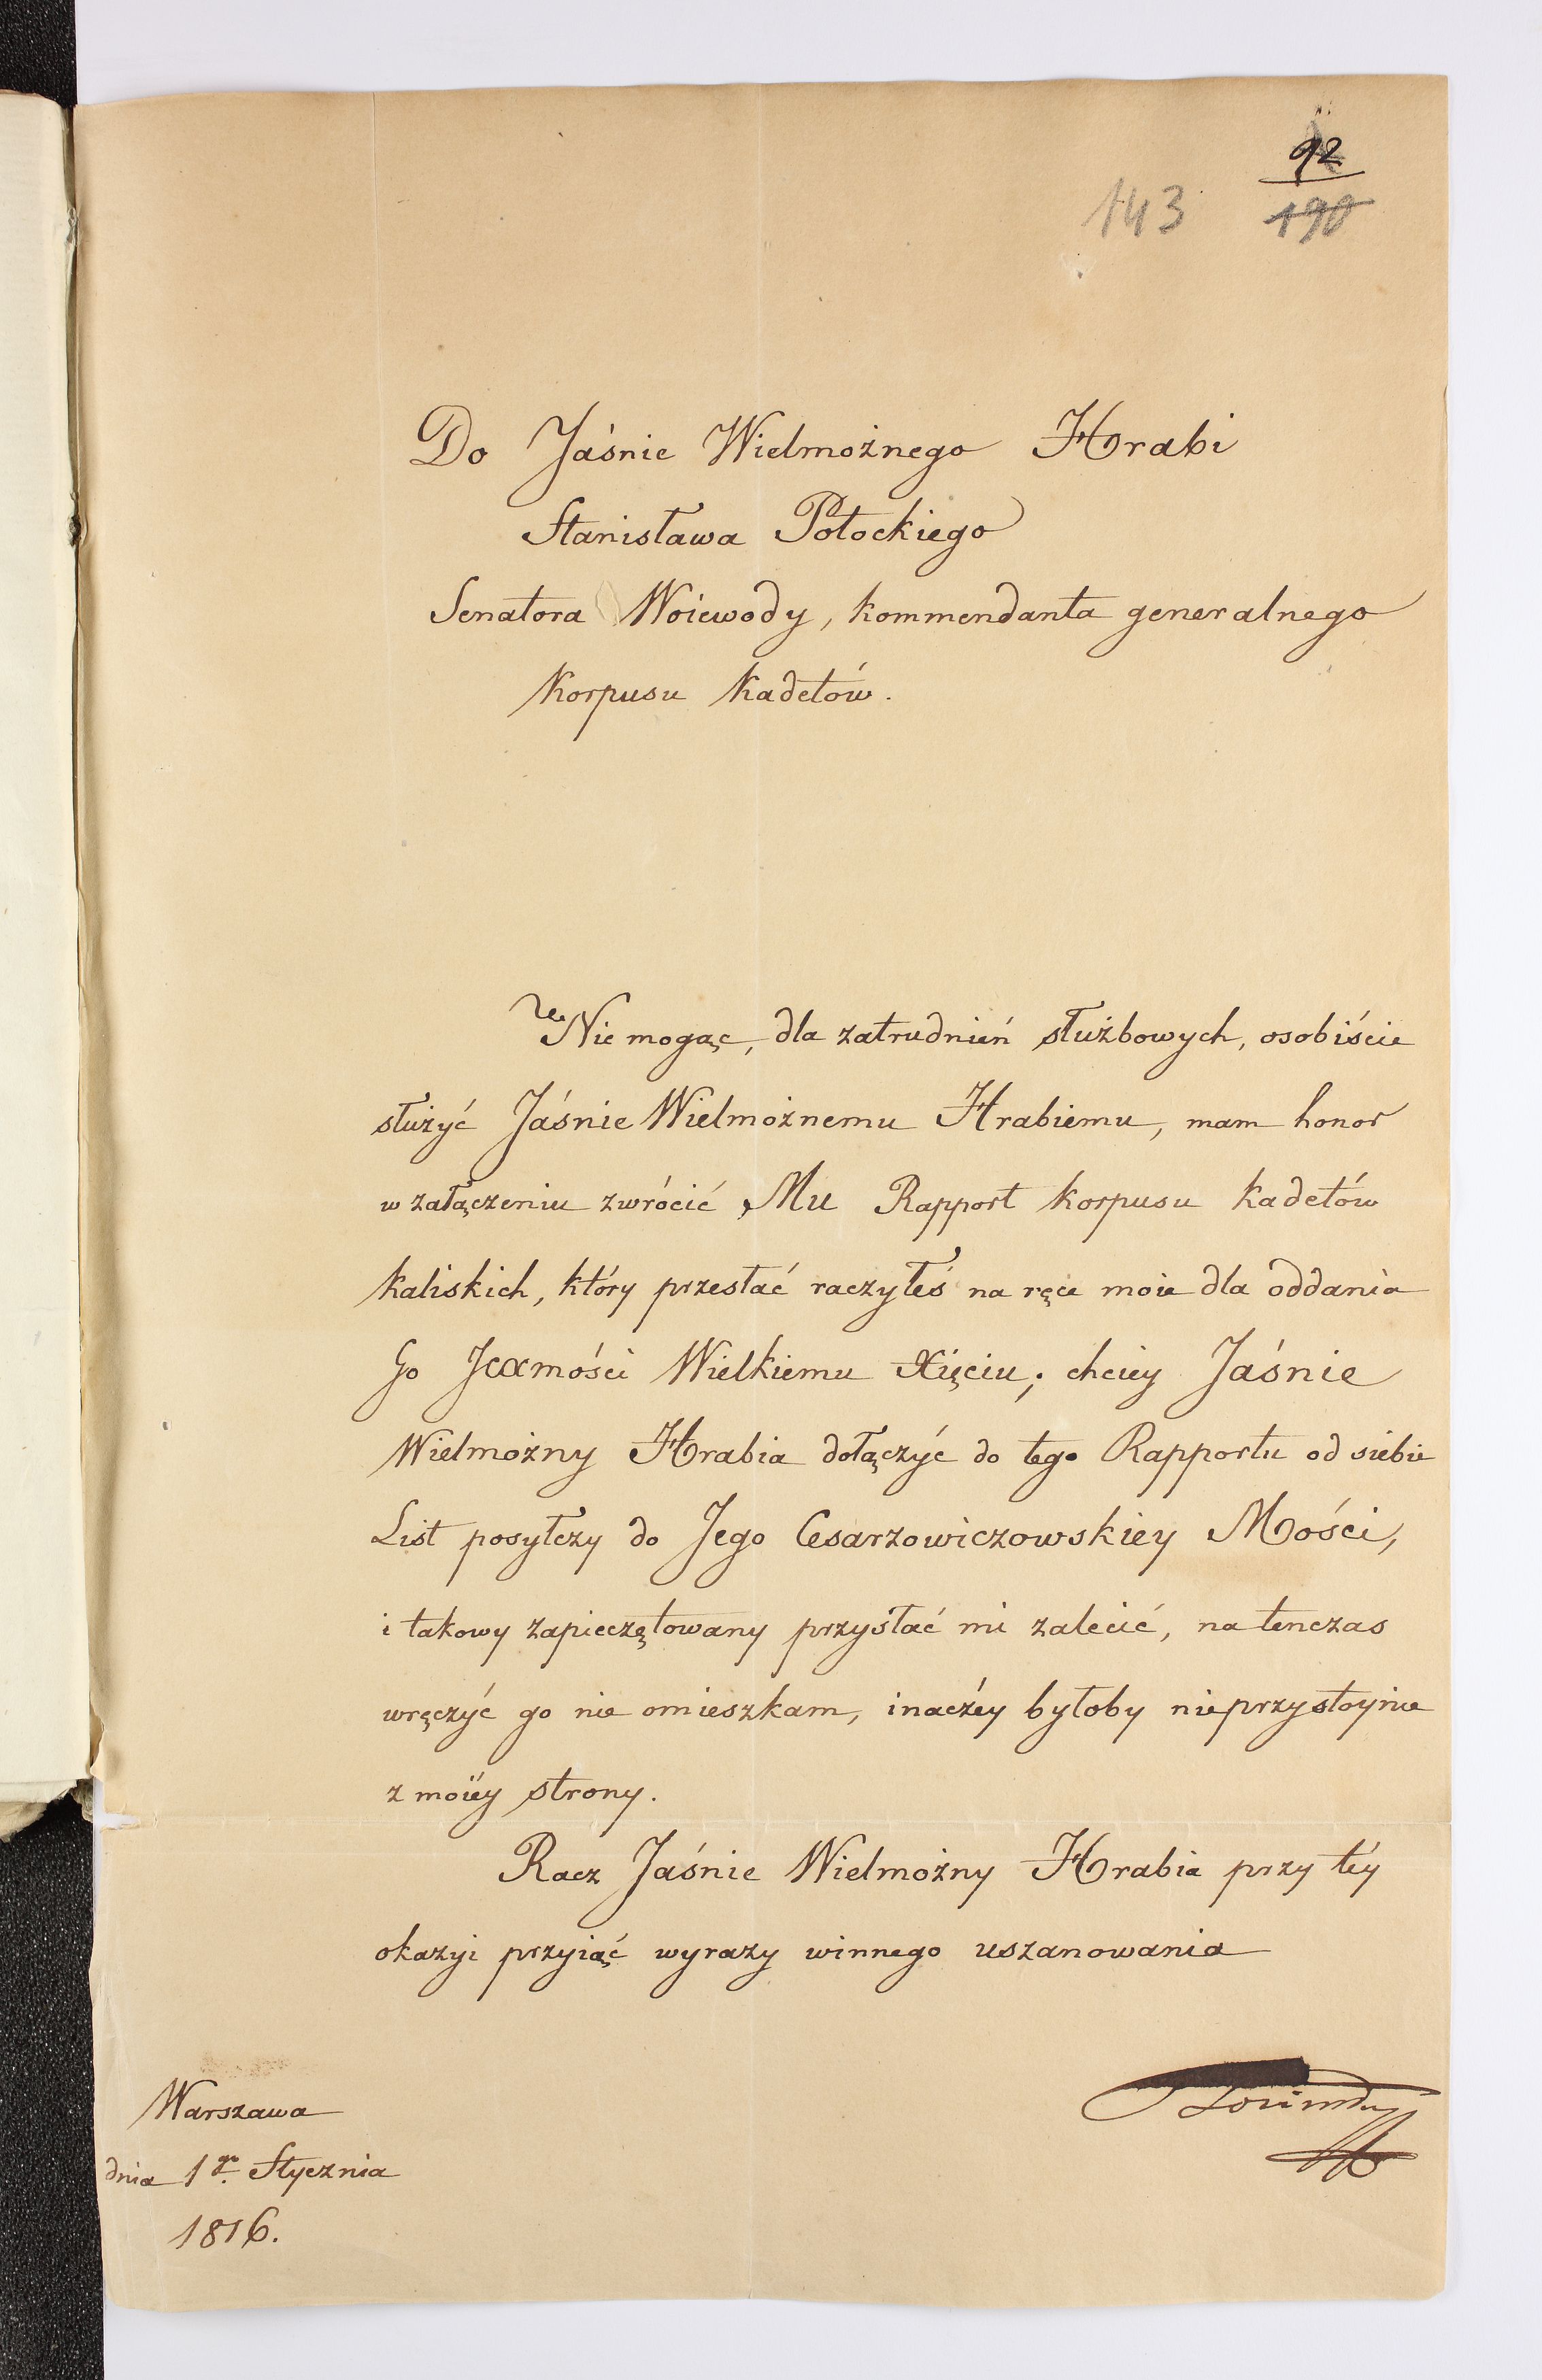 92
143 190
Do Jaśnie Wielmożnego Hrabi
Stanisława Potockiego
Senatora Woiewody, kommendanta generalnego
Korpusu Kadetów.
Nie mogąc, dla zatrudnień służbowych, osobiście
służyć Jaśnie Wielmożnemu Hrabiemu, mam honor
w załączeniu zwrócić Mu Rapport korpusu kadetów
kaliskich, który przesłać raczyłeś na ręce moie dla oddania
Go Jcxmości Wielkiemu Xięciu; chciey Jaśnie
Wielmożny Hrabia dołączyć do tego Rapportu od siebie
List posyłczy do Jego Cesarzowiczowskiey Mości,
i takowy zapieczętowany przysłać mi zalecić, na tenczas
wręczyć go nie omieszkam, inaczéy byłoby nieprzystoynie
z moiéy strony.
Racz Jaśnie Wielmożny Hrabia przy téy
okazyi przyiąć wyrazy winnego uszanowania
Warszawa
dnia 1go Stycznia
1816.